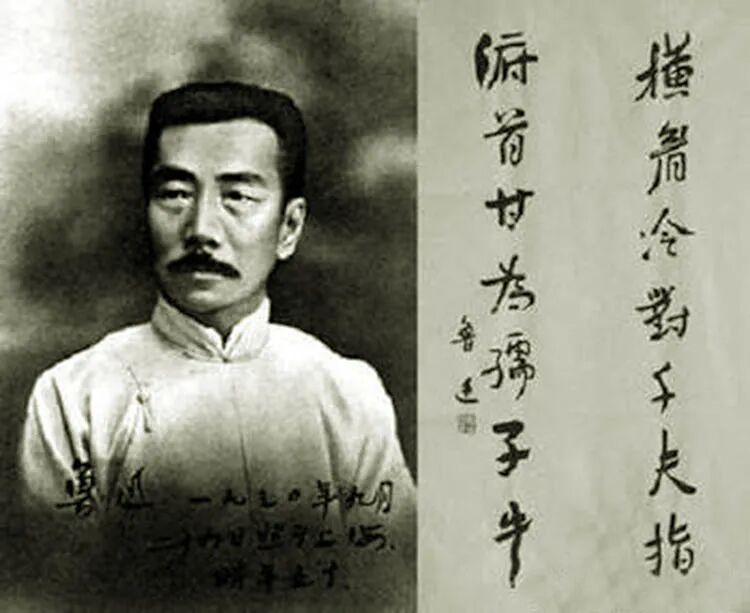 橫眉冷對千夫指
俯首甘为孺子牛
魯迅
魯迅 一九三〇年九月
二十四日照于上海、
時年五十